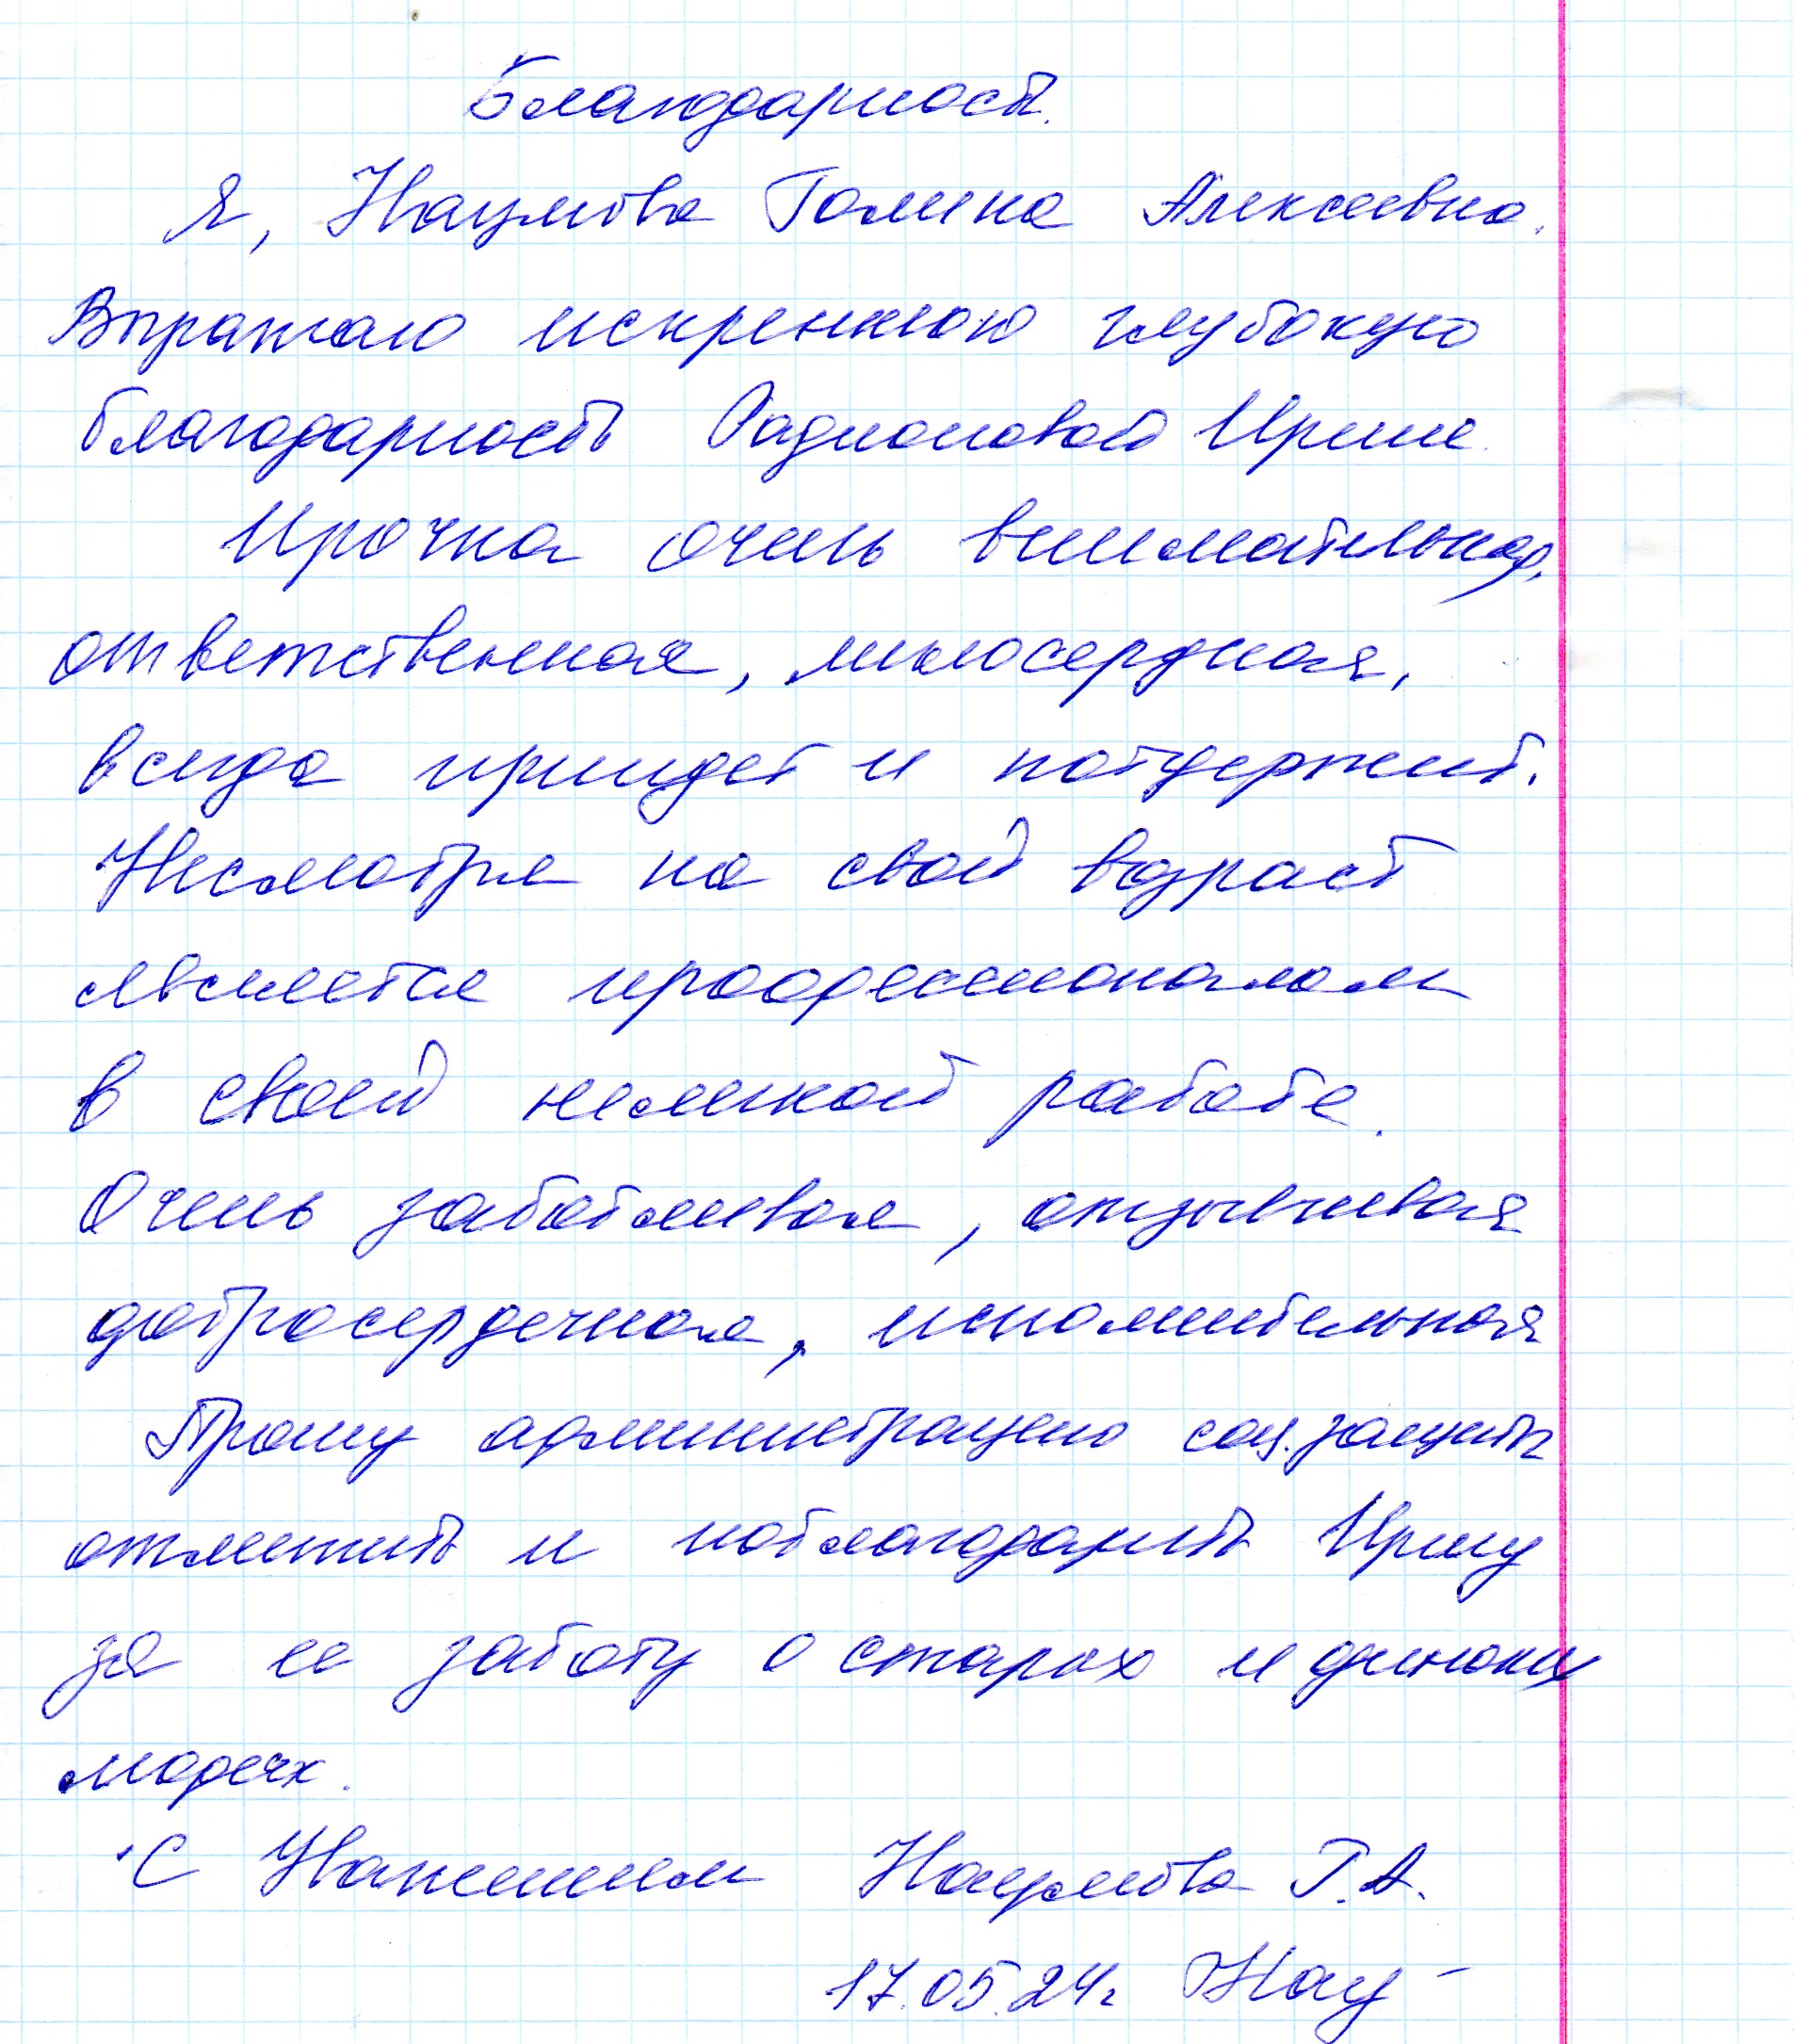 Благодарность.
Я, Наумова Галина Алексеевна.
Выражаю искреннюю глубокую
благодарность Радионовой Ирине.
Ирочка очень внимательная,
ответственная, милосердная,
всегда придет и поддержит.
Несмотря на свой возраст
является профессионалом
в своей нелегкой работе.
Очень заботливая, отзывчивая
добросердечная, исполнительная
Прошу администрацию соц. защиты
отметить и поблагодарить Ирину
за ее заботу о старых и одиноких
людях.
С Уважением Наумова Г.А.
17.05.24г Нау